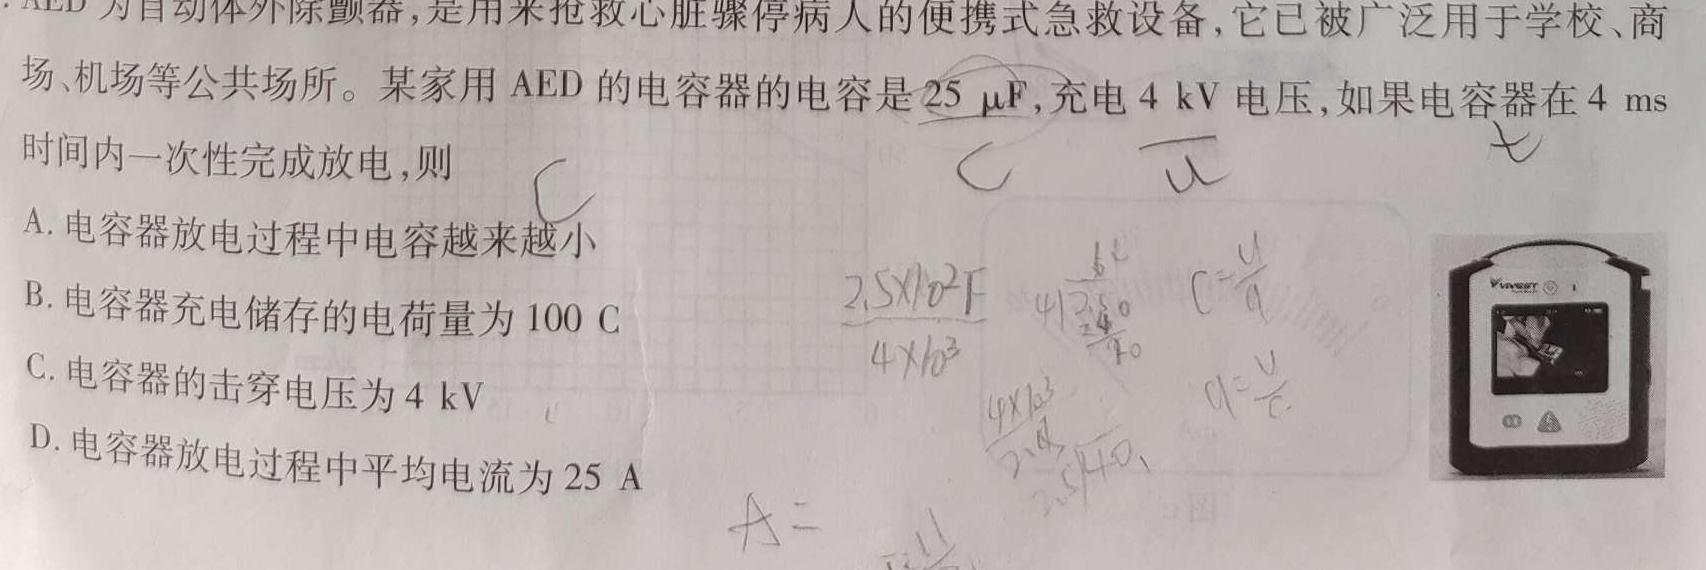 AED 为自动体外除颤器,是用来抢救心脏骤停病人的便携式急救设备,它已被广泛用于学校、商
场、机场等公共场所。某家用 AED 的电容器的电容是 25 μF,充电 4 kV 电压,如果电容器在 4 ms
时间内一次性完成放电,则
C
C
U
t
A. 电容器放电过程中电容越来越小
B. 电容器充电储存的电荷量为 100 C
C. 电容器的击穿电压为 4 kV
D. 电容器放电过程中平均电流为 25 A
2.5×10²F
4×10³
C=U/q
q=U/C
4×10³
A=
VIVEST